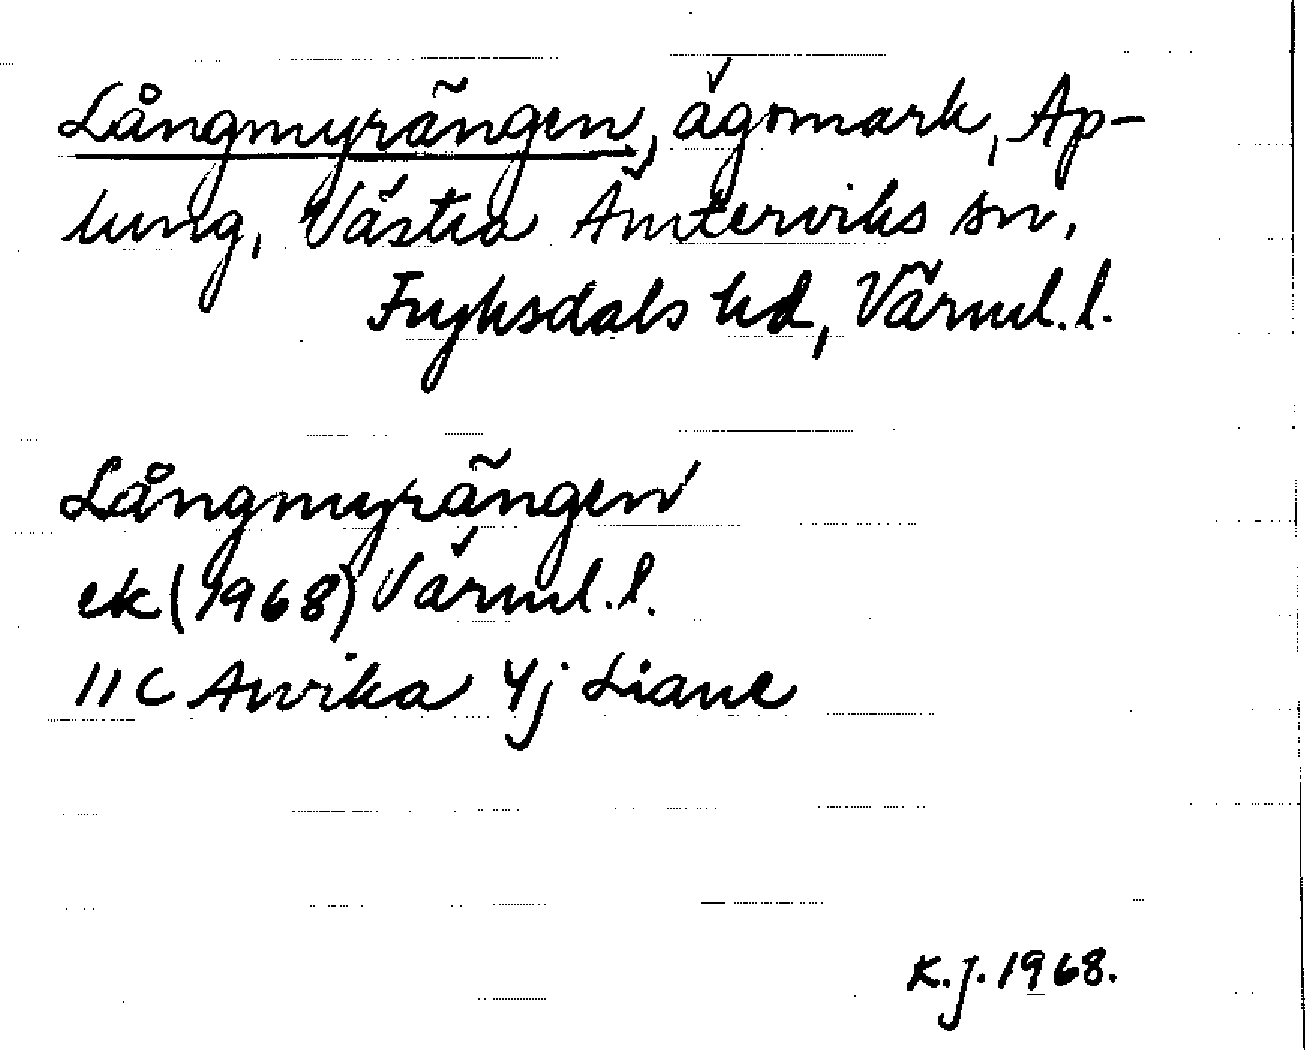 Långmyrängen, ägomark, Ap-
lung, Västra Ämterviks sn,
Fryksdals hd, Värml. l.
Långmyrängen
ek (1968) Värml. l.
11C Arvika 4j Liane
K.J. 1968.